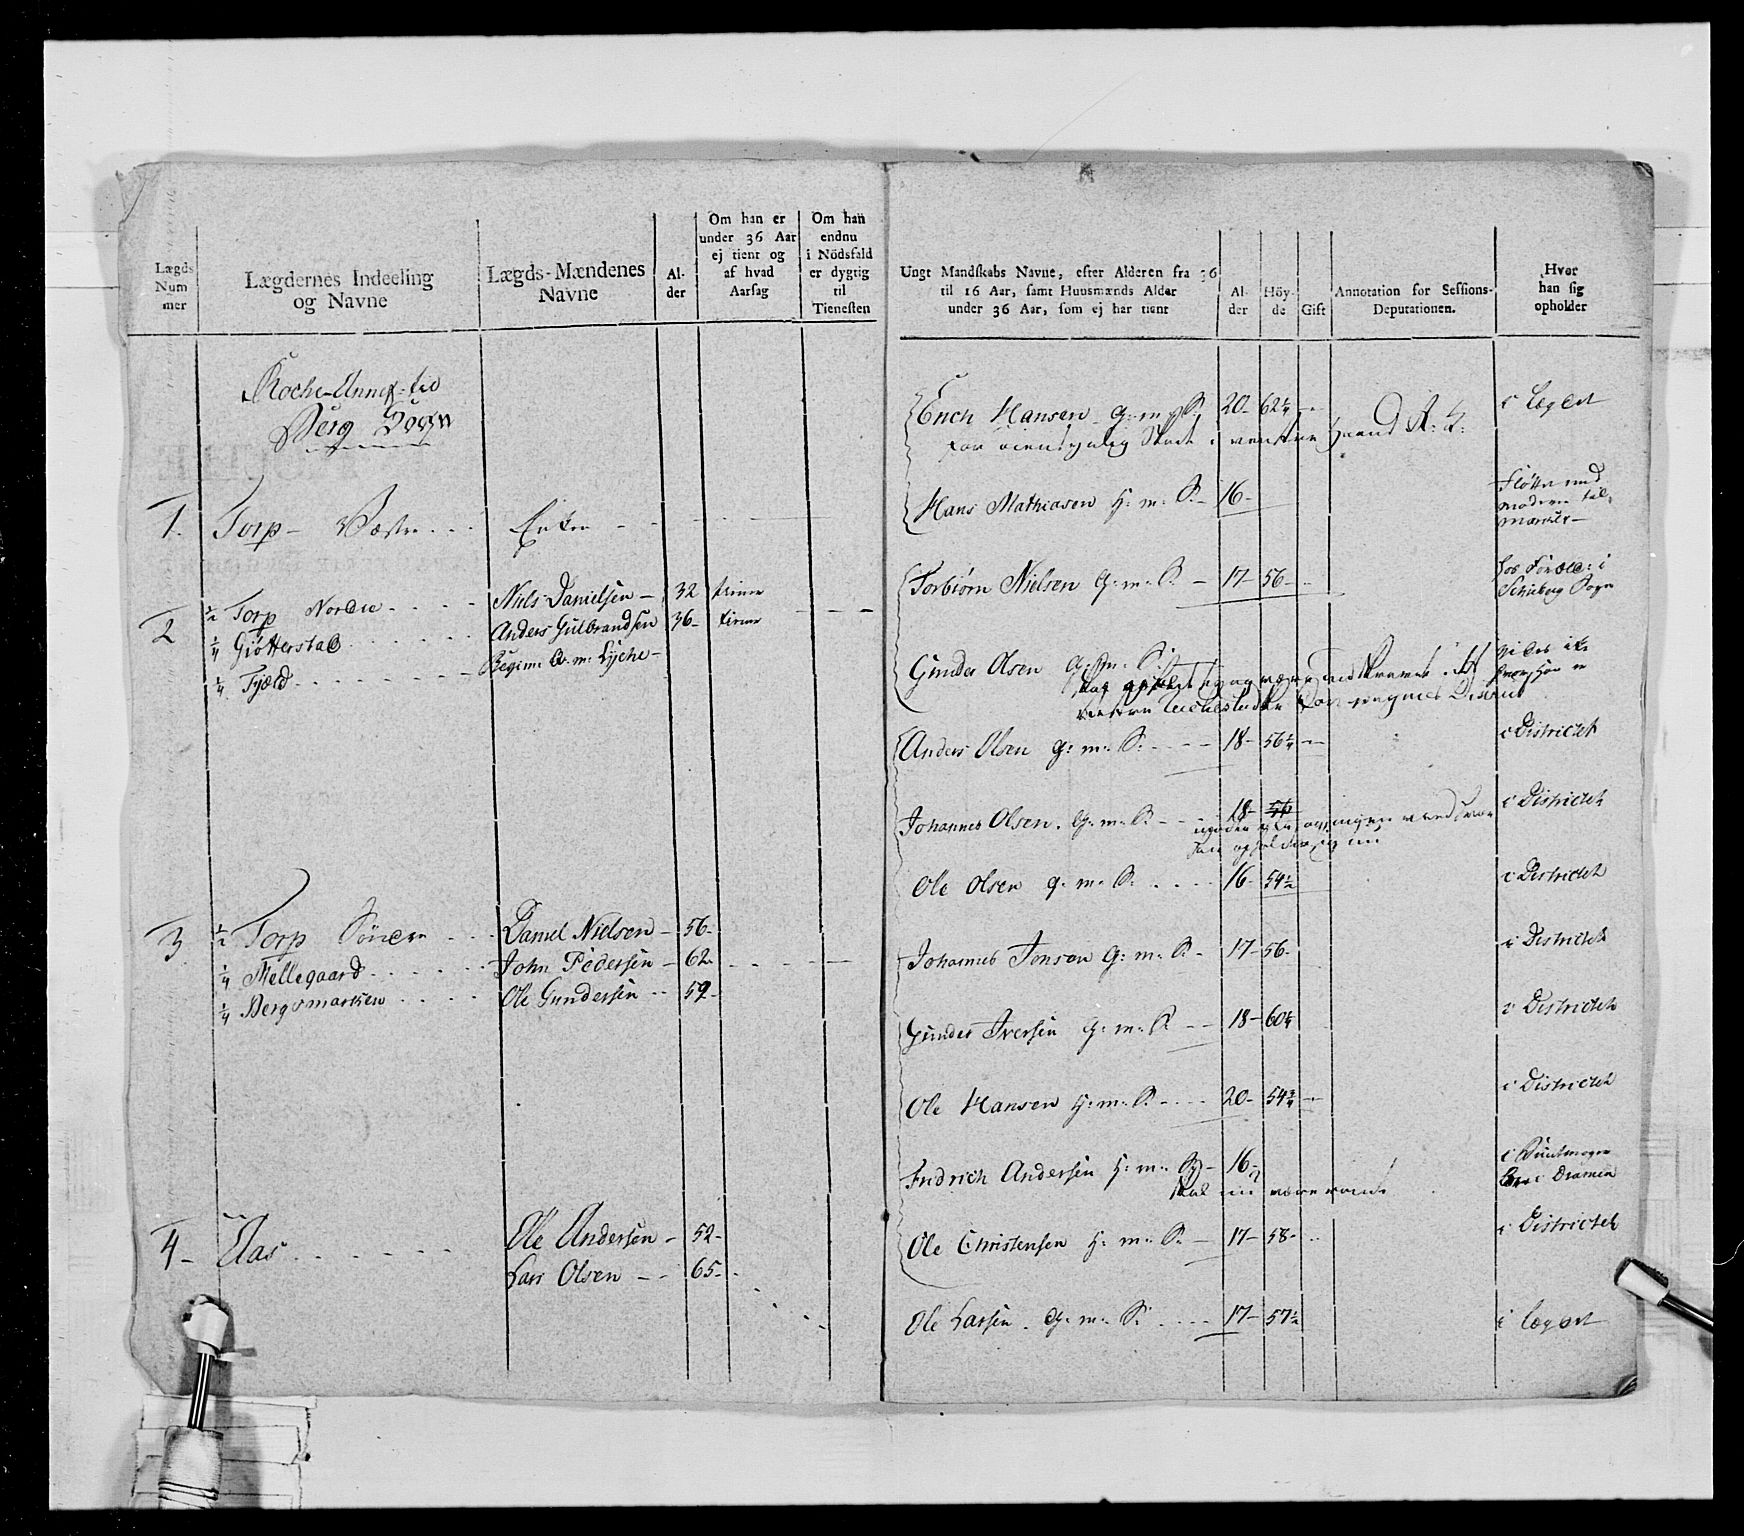 Lægds Num mer
Lægdernes Indeeling og Navne
Lægds-Mændenes Navne
Al- der
Om han er under 36 Aar ej tient og af hvad Aarsag
Om han endnu i Nödsfald er dygtig til Tienesten
Ungt Mandskabs Navne, efter Alderen fra 36 til 16 Aar, samt Huusmænds Alder under 36 Aar, som ej har tient
Al- der
Höy- de
Gift
Annotation for Sessions-Deputationen.
Hvor han sig opholder
Berg Sogn
1. Torp Væstre Enken
2 ½ Torp Nordre Niels Danielsen 32 tiener
¼ Giötterstad Anders Gulbrandsen 36 tiener
¼ Fjæld Lyche
3 ½ Torp Söndre Daniel Nielsen 56
¼ Mellegaard John Pedersen 62
¼ Bergsmarken Ole Gundersen 59
4 Aas Ole Andersen 52
Lars Olsen 65
Erich Hansen G: m: S. 20 62¼ i Lægdet
Skade i venstre Haand
Hans Mathiasen H: m: S. 16
Torbiörn Nielsen G: m: S. 17 56
Gunder Olsen G: m: S.
Anders Olsen G: m: S. 18 56¼ i Districtet
Johannes Olsen G: m: S. 18 56 i Districtet
Ole Olsen G: m: S. 16 54½ i Districtet
Johannes Jonsen G: m: S. 17 56 i Districtet
Gunder Iversen G: m: S. 18 60¼ i Districtet
Ole Hansen H: m: S. 20 54¾ i Districtet
Fridrich Andersen H: m: S. 16
skal nu være
Ole Christensen H: m: S. 17 58 i Districtet
Ole Larsen G: m: S. 17 57½ i Lægdet